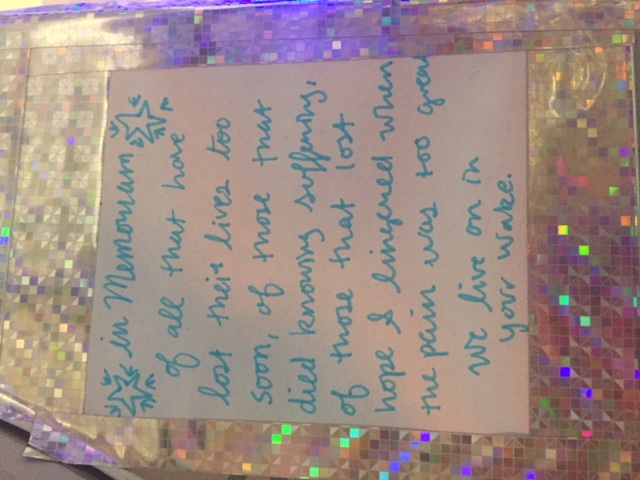 in Memoriam
of all that have
lost their lives too
soon, of those that
died knowing suffering,
of those that lost
hope & lingered when
the pain was too great
we live on in
your wake.